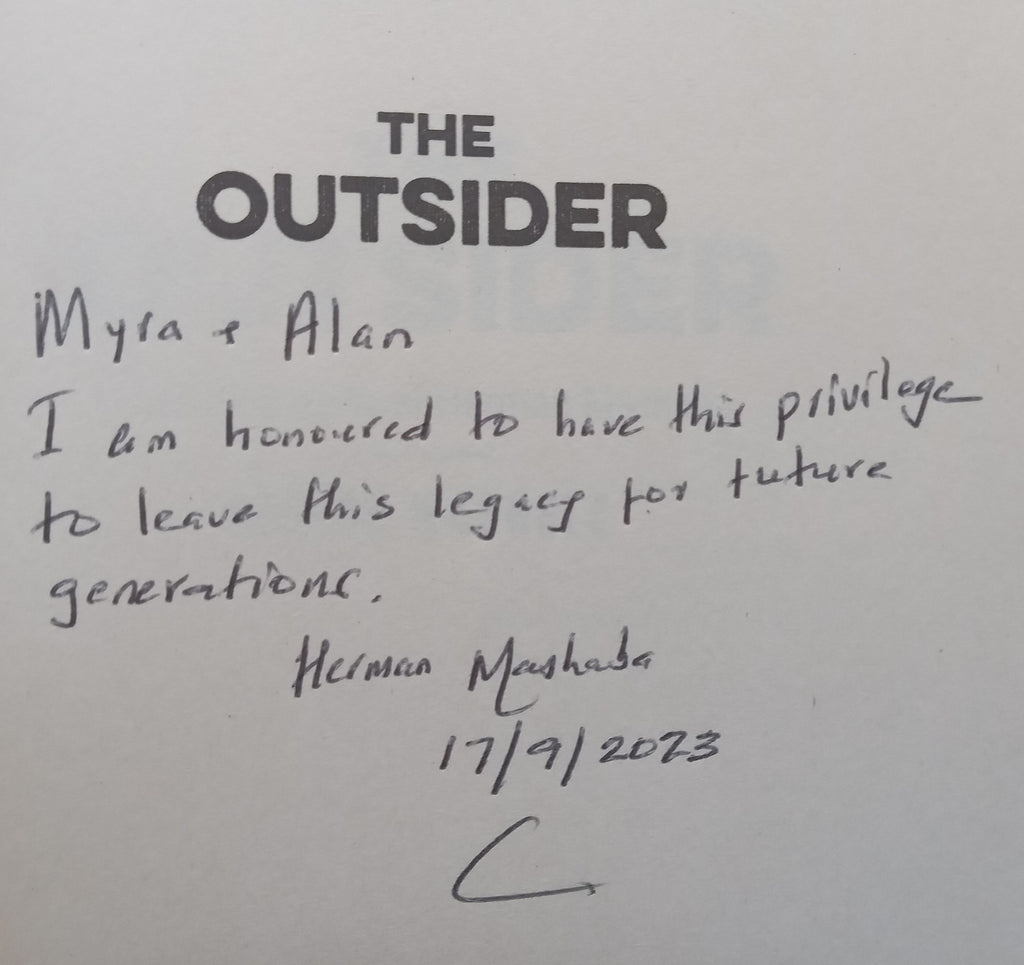 THE
OUTSIDER
Myra + Alan
I am honoured to have this privilege
to leave this legacy for future
generations.
Herman Mashaba
17/9/2023